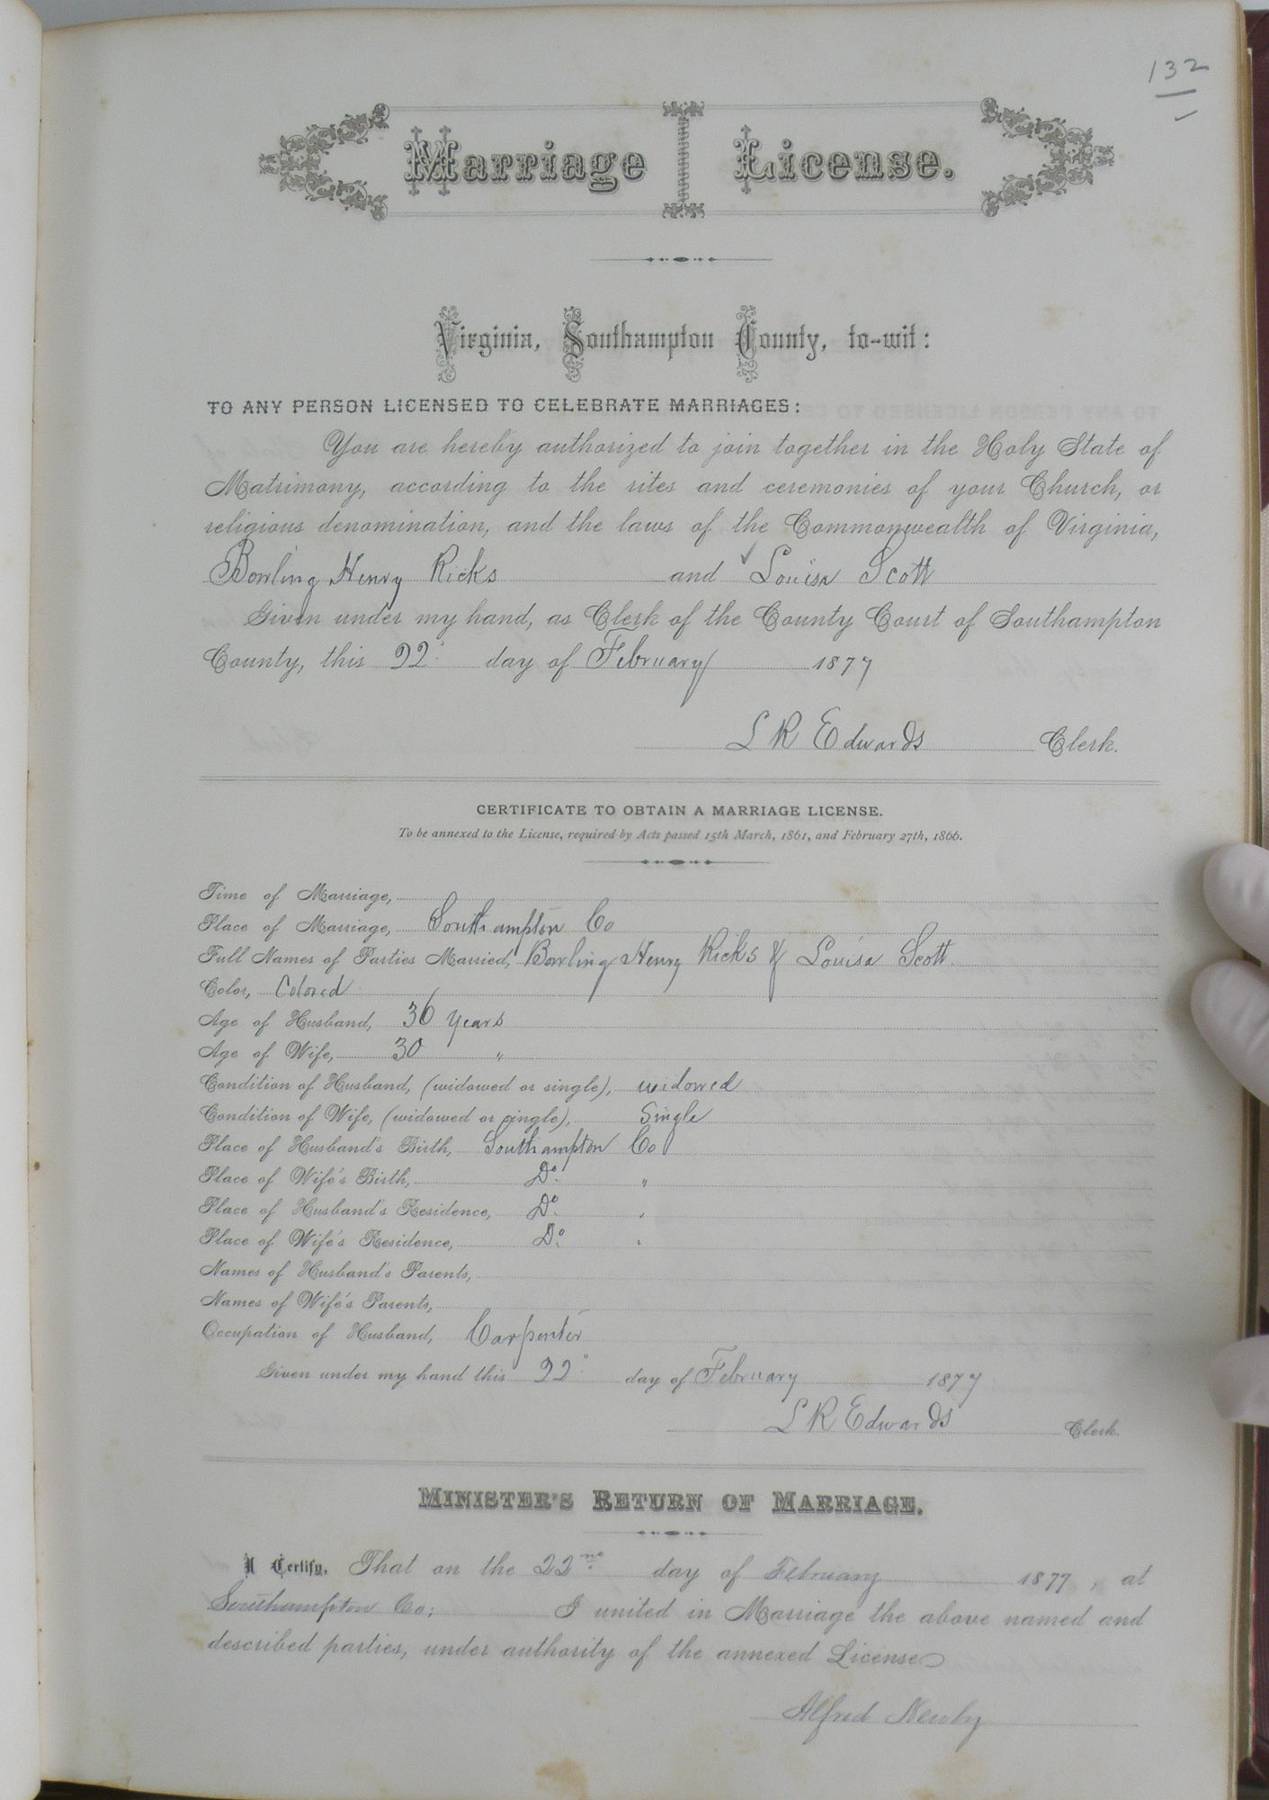 132
Marriage License.
Virginia, Southampton County, to-wit:
TO ANY PERSON LICENSED TO CELEBRATE MARRIAGES:
You are hereby authorized to join together in the Holy State of
Matrimony, according to the rites and ceremonies of your Church, or
religious denomination, and the laws of the Commonwealth of Virginia,
Bowling Henry Ricks and Louisa Scott
Given under my hand, as Clerk of the County Court of Southampton
County, this 22 day of February 1877
L R Edwards Clerk.
CERTIFICATE TO OBTAIN A MARRIAGE LICENSE.
To be annexed to the License, required by Acts passed 15th March, 1861, and February 27th, 1866.
Time of Marriage,
Place of Marriage, Southampton Co
Full Names of Parties Married, Bowling Henry Ricks & Louisa Scott
Color, Colored
Age of Husband, 36 years
Age of Wife, 30 "
Condition of Husband, (widowed or single), widowed
Condition of Wife, (widowed or single), Single
Place of Husband's Birth, Southampton Co
Place of Wife's Birth, Do "
Place of Husband's Residence, Do "
Place of Wife's Residence, Do "
Names of Husband's Parents,
Names of Wife's Parents,
Occupation of Husband, Carpenter
Given under my hand this 22 day of February 1877
L R Edwards Clerk.
MINISTER'S RETURN OF MARRIAGE.
I Certify, That on the 22nd day of February 1877, at
Southampton Co; I united in Marriage the above named and
described parties, under authority of the annexed License
Alfred Newby